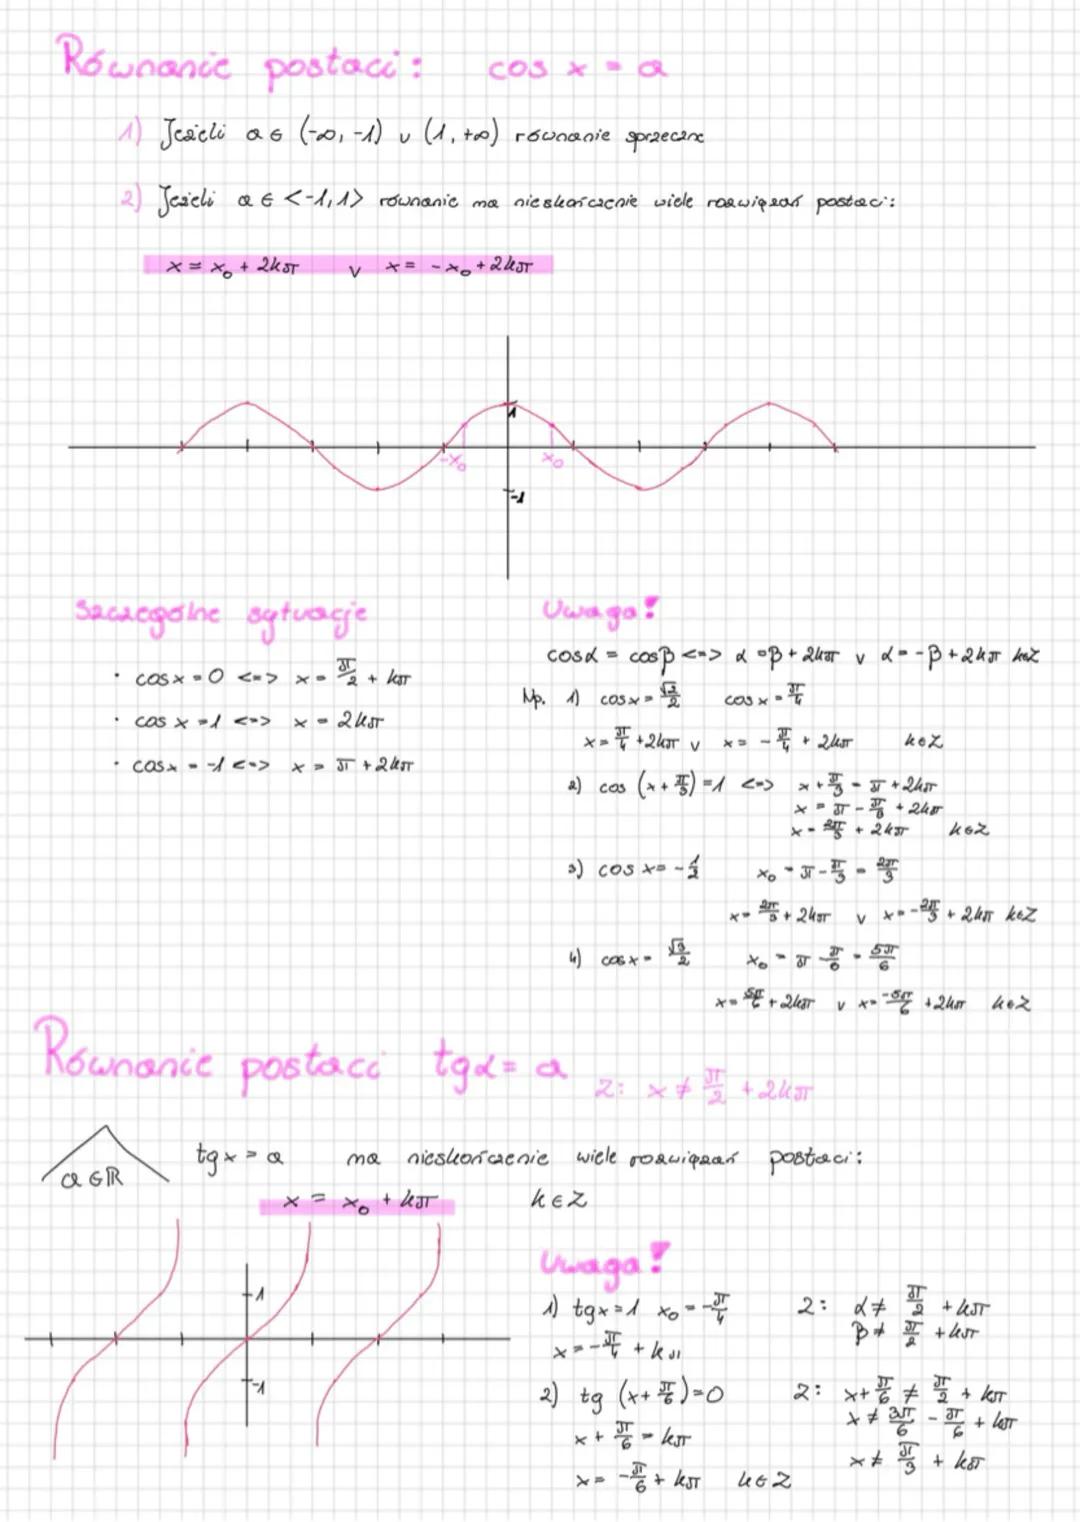 Równanie postaci: cos x = a
1) Jeżeli a ∈ (-∞, -1) ∪ (1, +∞) równanie sprzeczne
2) Jeżeli a ∈ <-1, 1> równanie ma nieskończenie wiele rozwiązań postaci:
x = x₀ + 2kπ v x = -x₀ + 2kπ
1
-x₀ x₀
-1
Szczególne sytuacje
· cos x = 0 <=> x = π/2 + kπ
· cos x = 1 <=> x = 2kπ
· cos x = -1 <=> x = π + 2kπ
Uwaga!
cosα = cosβ <=> α = β + 2kπ v α = -β + 2kπ k∈Z
Np. 1) cos x = √2/2 cos x = π/4
x = π/4 + 2kπ v x = -π/4 + 2kπ k∈Z
2) cos (x + π/3) = 1 <=> x + π/3 = π + 2kπ
x = π - π/3 + 2kπ
x = 2π/3 + 2kπ k∈Z
3) cos x = -1/2 x₀ = π - π/3 = 2π/3
x = 2π/3 + 2kπ v x = -2π/3 + 2kπ k∈Z
4) cos x = √3/2 x₀ = π - π/6 = 5π/6
x = 5π/6 + 2kπ v x = -5π/6 + 2kπ k∈Z
Równanie postaci tgα = a Z: x ≠ π/2 + 2kπ
a ∈ ℝ tg x = a ma nieskończenie wiele rozwiązań postaci:
x = x₀ + kπ k ∈ Z
1
-1
Uwaga!
1) tg x = 1 x₀ = -π/4 Z: α ≠ π/2 + kπ
x = -π/4 + kπ β ≠ π/2 + kπ
2) tg (x + π/6) = 0 Z: x + π/6 ≠ π/2 + kπ
x + π/6 = kπ x ≠ 3π/6 - π/6 + kπ
x = -π/6 + kπ k ∈ Z x ≠ π/3 + kπ